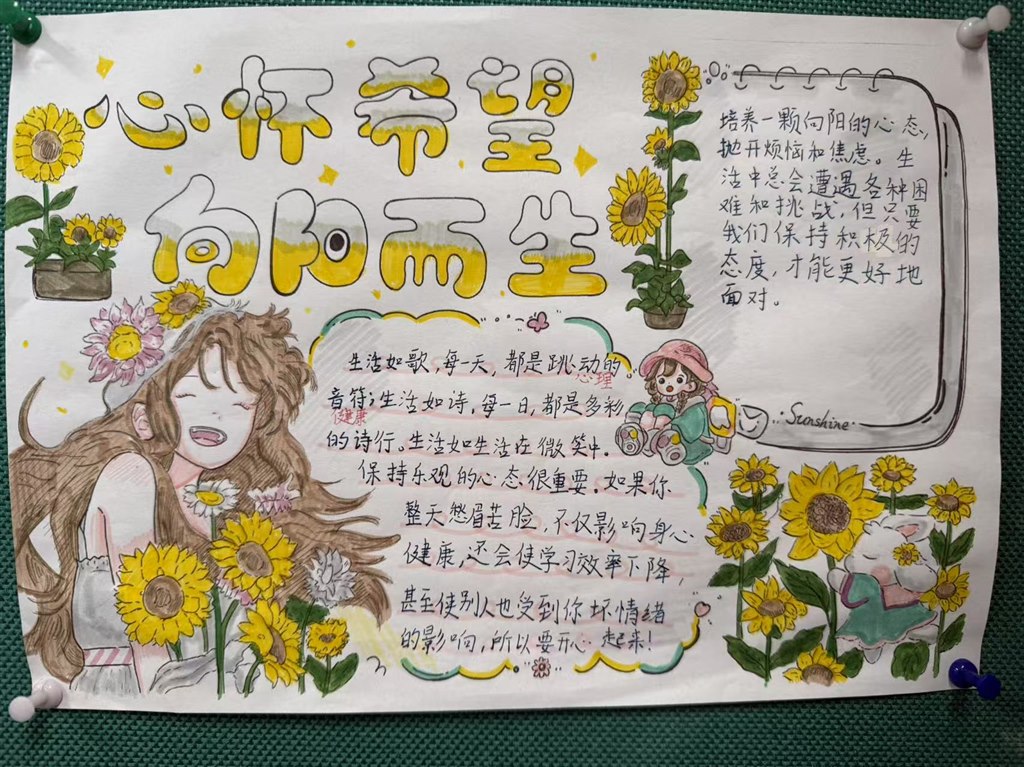 心怀希望
向阳而生
培养一颗向阳的心态,
抛开烦恼和焦虑。生
活中总会遭遇各种困
难和挑战,但只要
我们保持积极的
态度,才能更好地
面对。
Sunshine
生活如歌,每一天,都是跳动的
心理
音符;生活如诗,每一日,都是多彩
健康
的诗行。生活如生活在微笑中.
保持乐观的心态很重要.如果你
整天愁眉苦脸,不仅影响身心
健康,还会使学习效率下降,
甚至使别人也受到你坏情绪
的影响,所以要开心起来!